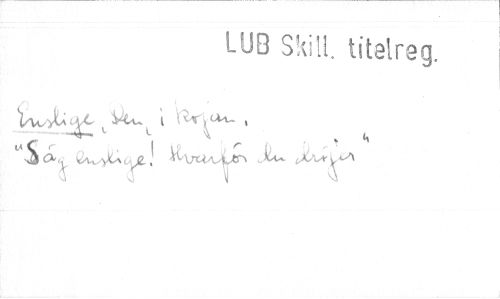 LUB Skill. titelreg.
Enslige, Den, i kojan.
"Säg enslige! Hvarför du dröjer"